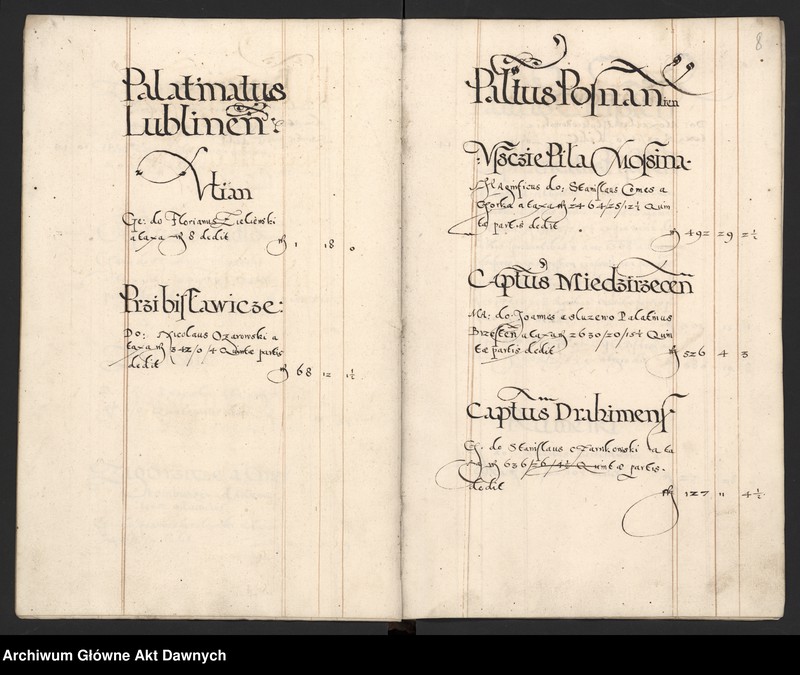 Palatinatus
Lublinen:
Vtian
Ge: do Florianus Zieliński
a taxa m 8 dedit m 1 18 0
Przibisławicze:
Do: Nicolaus Ozarowski a
taxa m 342/0/4 Quintæ partis
dedit m 68 12 1½
8
Pal̃tus Posnan ien
Vsczie Piła Mossina
Magnificus do: Stanislaus Comes a
Gorka a taxa m 2464/25/12½ Quin
tæ partis dedit m 492 29 2½
Captus Miedzirzecen
Ma: do Joannes a sluzewo Palatinus
Brzesten a taxa m 2630/20/15½ Quin
tæ partis dedit m 526 4 3
Captus Drahimens
G: do Stanislaus czarnkowski a ta
xa m 636/26/4½ Quintæ partis
dedit m 127 11 4½
Archiwum Główne Akt Dawnych